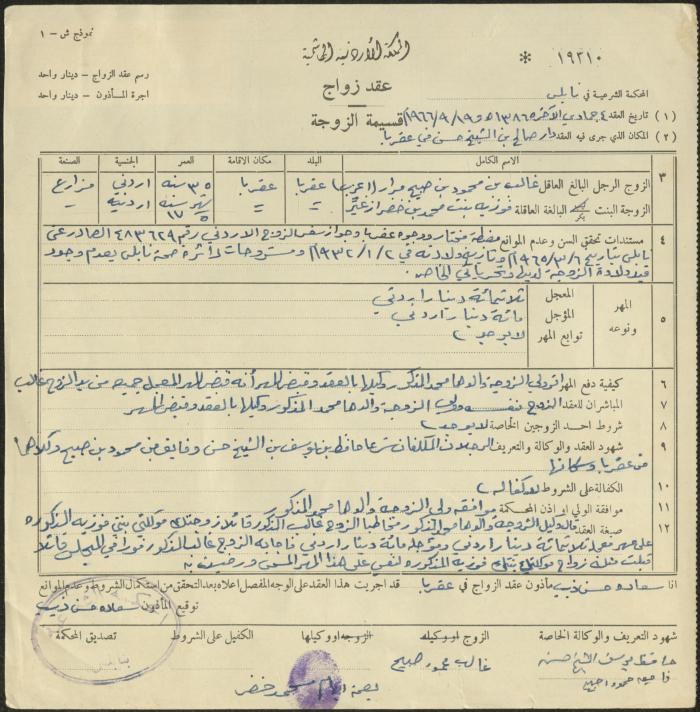 نموذج ش - ١
المملكة الأردنية الهاشمية
١٩٣١٠ *
عقد زواج
رسم عقد الزواج - دينار واحد
اجرة المأذون - دينار واحد
قسيمة الزوجة
المحكمة الشرعية في نابلس
(١) تاريخ العقد ٤ جمادى الآخر ١٣٨٦ه و ١٩/٩/١٩٦٦م
(٢) المكان الذي جرى فيه العقد دار صالح بن الشيخ حسن في عقربا
الاسم الكامل البلد مكان الاقامة العمر الجنسية الصنعة
٣ الزوج الرجل البالغ العاقل غالب بن محمود بن صبيح مرار (اعزب) عقربا عقربا ٣٥ سنة اردني مزارع
الزوجة البنت بكر البالغة العاقلة فوزيه بنت محمد بن خضر = = سنة ١٧ اردنية
٤ مستندات تحقق السن وعدم الموانع مضبطة مختار ووجوه عقربا وجواز سفر الزوج الاردني رقم ٤٨٣٦٢٩ الصادر عن
نابلس بتاريخ ٦/٣/١٩٦٥م وتاريخ ولادته في ٢/١/١٩٣٢م دائرة صحة نابلس بعدم وجود
قيد ولادة الزوجة لديها
٥ المهر ونوعه
المعجل ثلاثمائة دينار اردني
المؤجل مائة دينار اردني
توابع المهر لا يوجد
٦ كيفية دفع المهر اقر ولي الزوجة والدها محمد المذكور وكيلها بالعقد وقبض المهر أنه قبض المهر المعجل جميعه من يد الزوج غالب
٧ المباشران للعقد الزوج نفسه وولي الزوجة والدها محمد المذكور وكيلها بالعقد وقبض المهر
٨ شروط احد الزوجين الخاصة لا يوجد
٩ شهود العقد والوكالة والتعريف الرجلان المكلفان شرعا حافظ بن يوسف بن الشيخ حسن وفايق بن محمود بن صبيح وكلاهما
من عقربا وسكانها
١٠ الكفالة على الشروط لا كفالة
١١ موافقة الولي او اذن المحكمة موافقة ولي الزوجة والدها محمد المذكور
١٢ صيغة العقد قال وكيل الزوجة والدها محمد المذكور مخاطبا الزوج غالب المذكور قائلا زوجتك موكلتي بنتي فوزيه المذكوره
على مهر معجل ثلاثمائة دينار اردني ومؤجله مائة دينار اردني فاجابه الزوج غالب المذكور فورا في المجلس قائلا
قبلت منك زواج موكلتك بنتك فوزيه المذكوره لنفسي على هذا المهر المسمى ورضيت به
انا سعاده حسن ذيب مأذون عقد الزواج في عقربا قد اجريت هذا العقد على الوجه المفصل اعلاه بعد التحقق من استكمال الشروط وعدم الموانع
توقيع المأذون سعاده حسن ذيب
شهود التعريف والوكالة الخاصة الزوج او وكيله الزوجة او وكيلها الكفيل على الشروط تصديق المحكمة
حافظ يوسف الشيخ حسن
غالب محمود صبيح
بصمة ابهام محمد خضر
نابلس